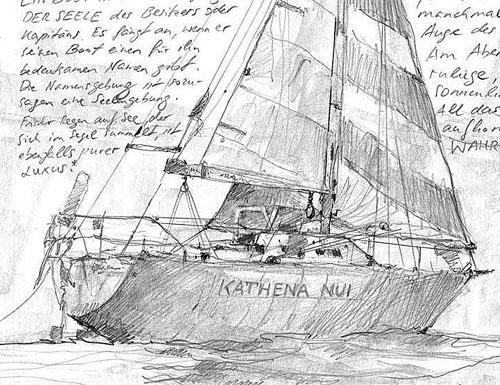 DER SEELE des Besitzers oder
Kapitäns. Es fängt an, wenn er
seinem Boot einen für ihn
bedeutsamen Namen gibt.
Die Namensgebung ist sozu-
sagen eine Seelengebung.
liegen auf See, der
sich im Segel sammelt, ist
ebenfalls purer
LUXUS.
manchmal
Auge des
Am Aben
ruhige
sonnenli
All das
aufhor
WAHR
KATHENA NUI